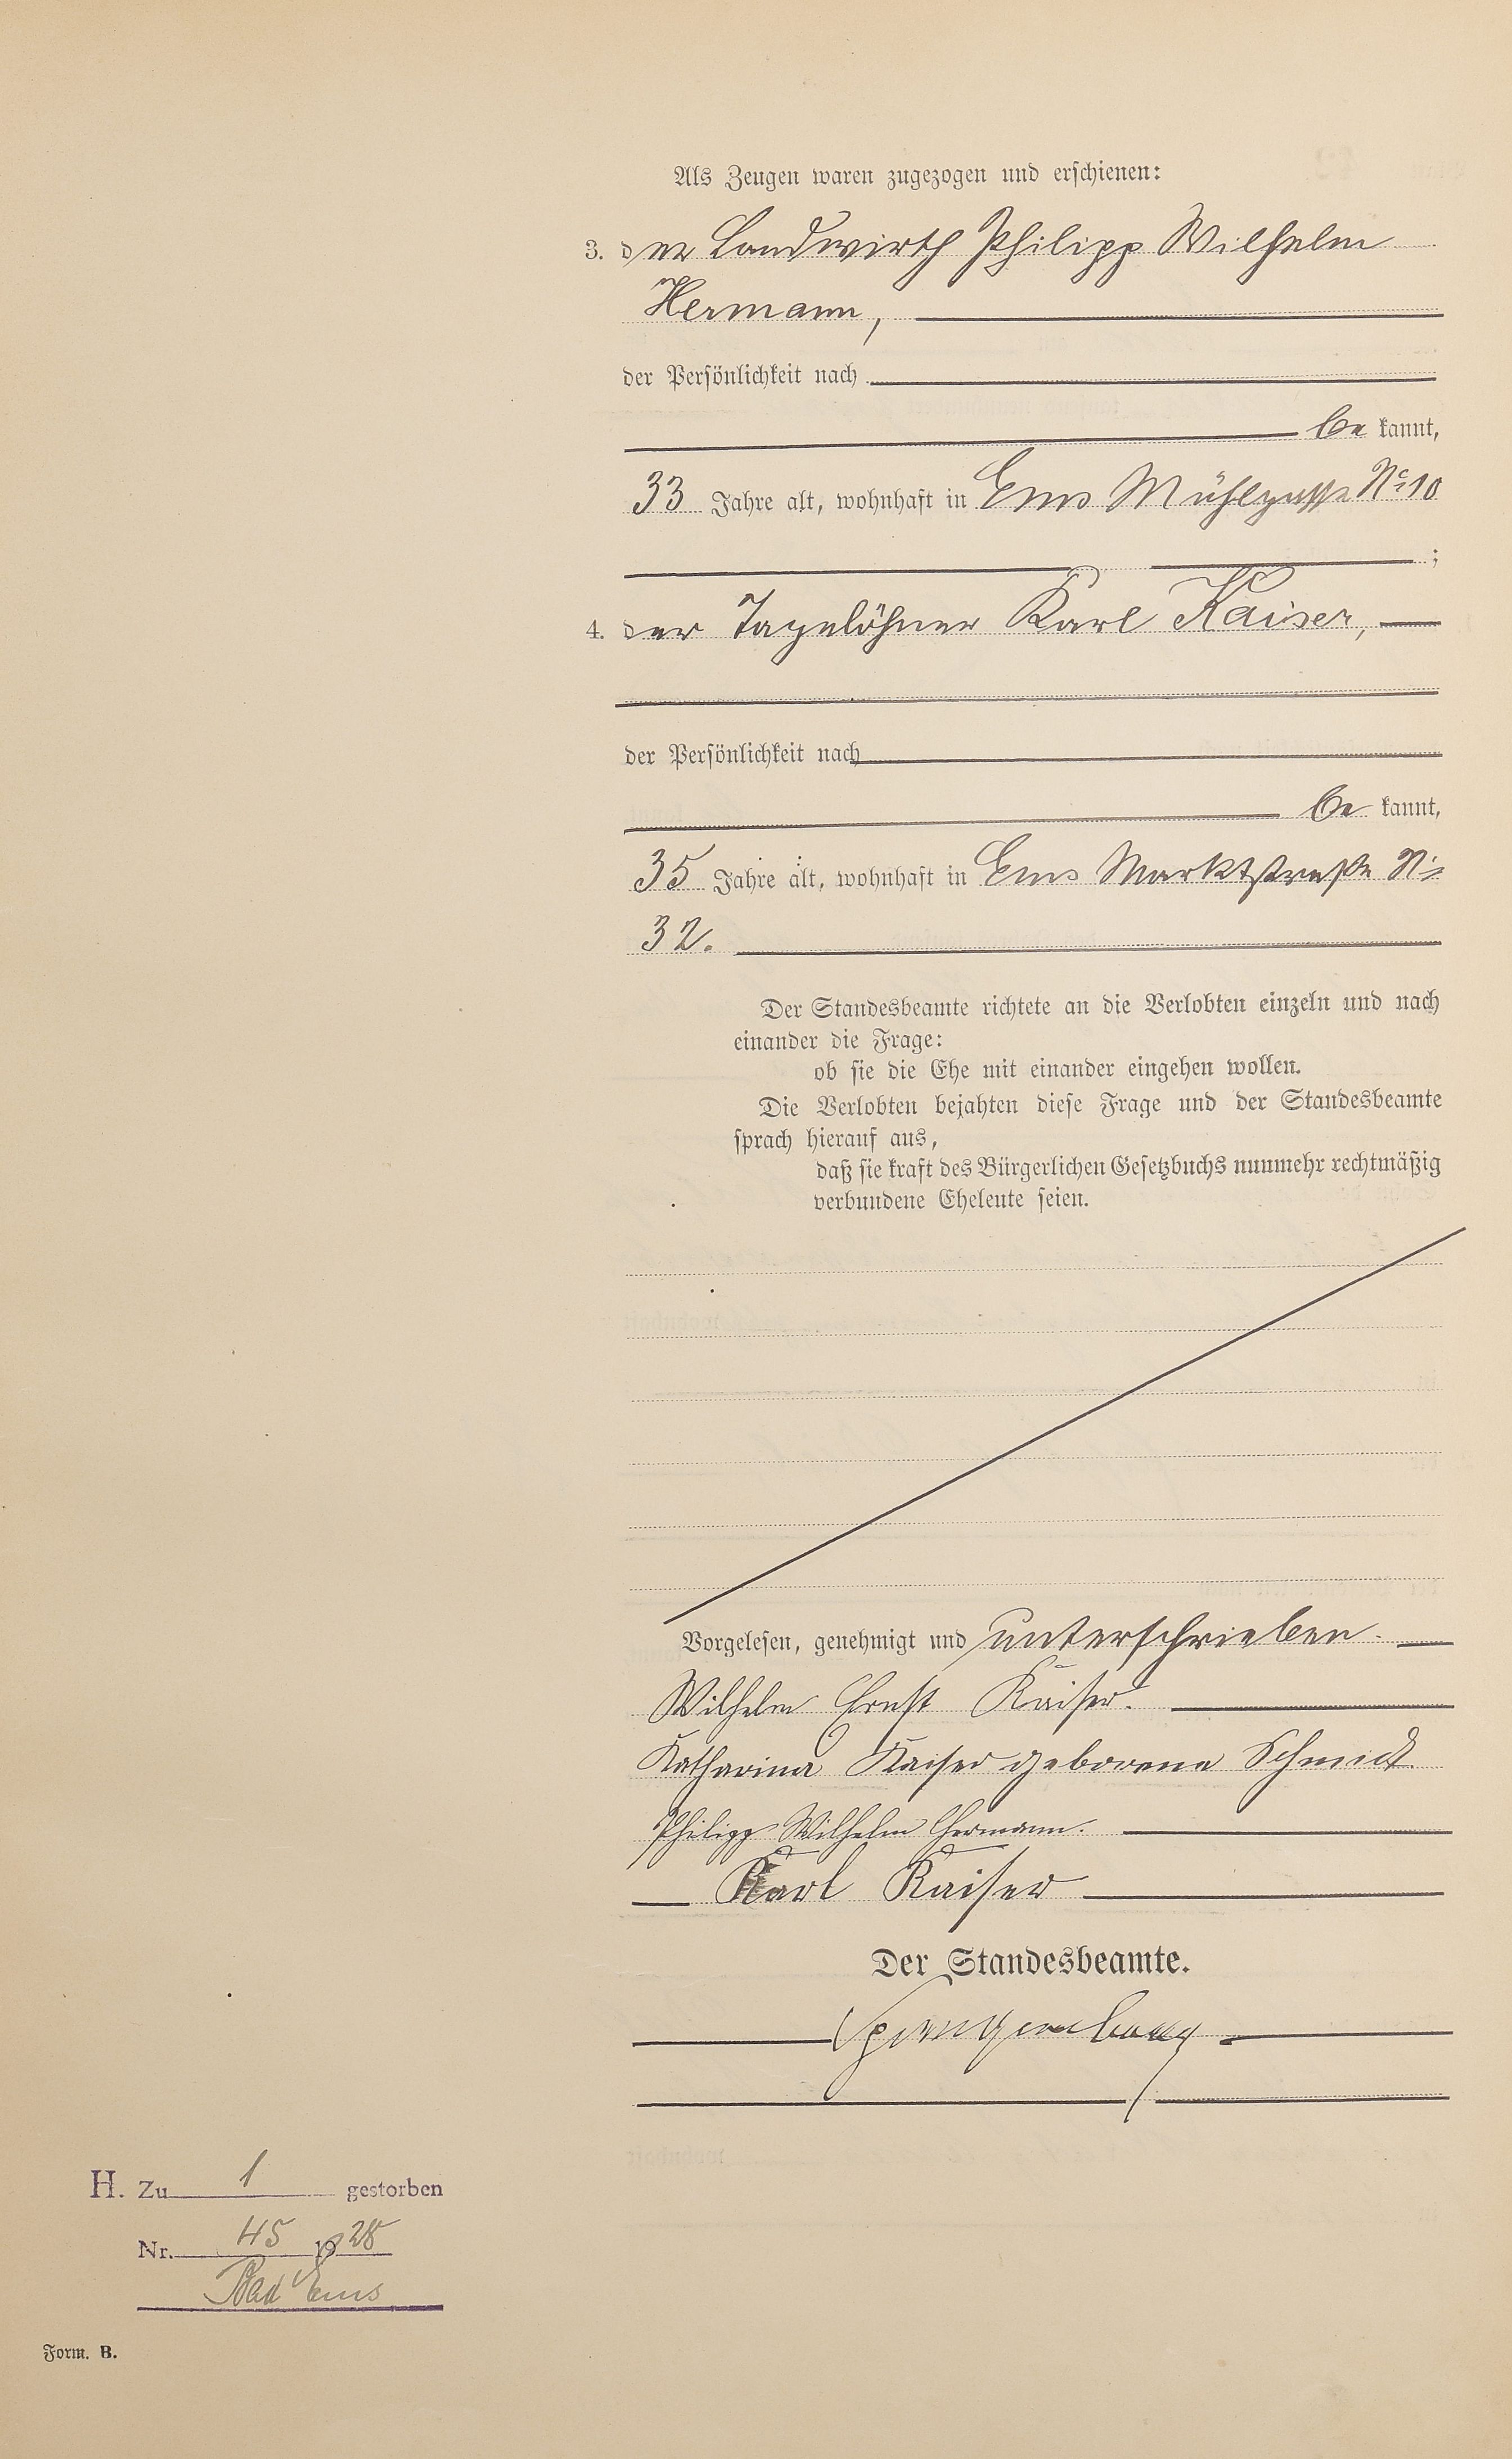 Als Zeugen waren zugezogen und erschienen:
3. der Landwirth Philipp Wilhelm
Hermann,
der Persönlichkeit nach
be kannt,
33 Jahre alt, wohnhaft in Ems Mühlgasse No 10
;
4. der Tagelöhner Karl Kaiser,
der Persönlichkeit nach
be kannt,
35 Jahre alt, wohnhaft in Ems Marktstraße No
32.
Der Standesbeamte richtete an die Verlobten einzeln und nach
einander die Frage:
ob sie die Ehe mit einander eingehen wollen.
Die Verlobten bejahten diese Frage und der Standesbeamte
sprach hierauf aus,
daß sie kraft des Bürgerlichen Gesetzbuchs nunmehr rechtmäßig
verbundene Eheleute seien.
Vorgelesen, genehmigt und unterschrieben.
Wilhelm Ernst Kaiser.
Katharina Kaiser geborene Schmidt.
Philipp Wilhelm Hermann.
Karl Kaiser
Der Standesbeamte.
H. Zu 1 gestorben
Nr. 45 1928
Bad Ems
Form. B.